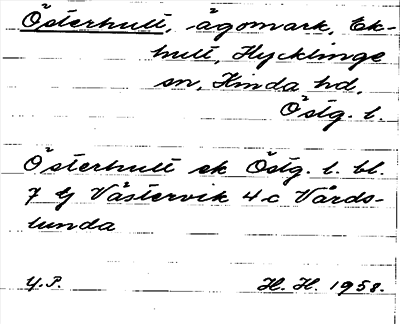 Österhult, ägomark, Ek-
hult, Hycklinge
sn, Kinda hd,
Östg. l.
Österhult ek Östg. l. bl.
7 G Västervik 4 c Vårds-
lunda
Y.P. H. H. 1958.